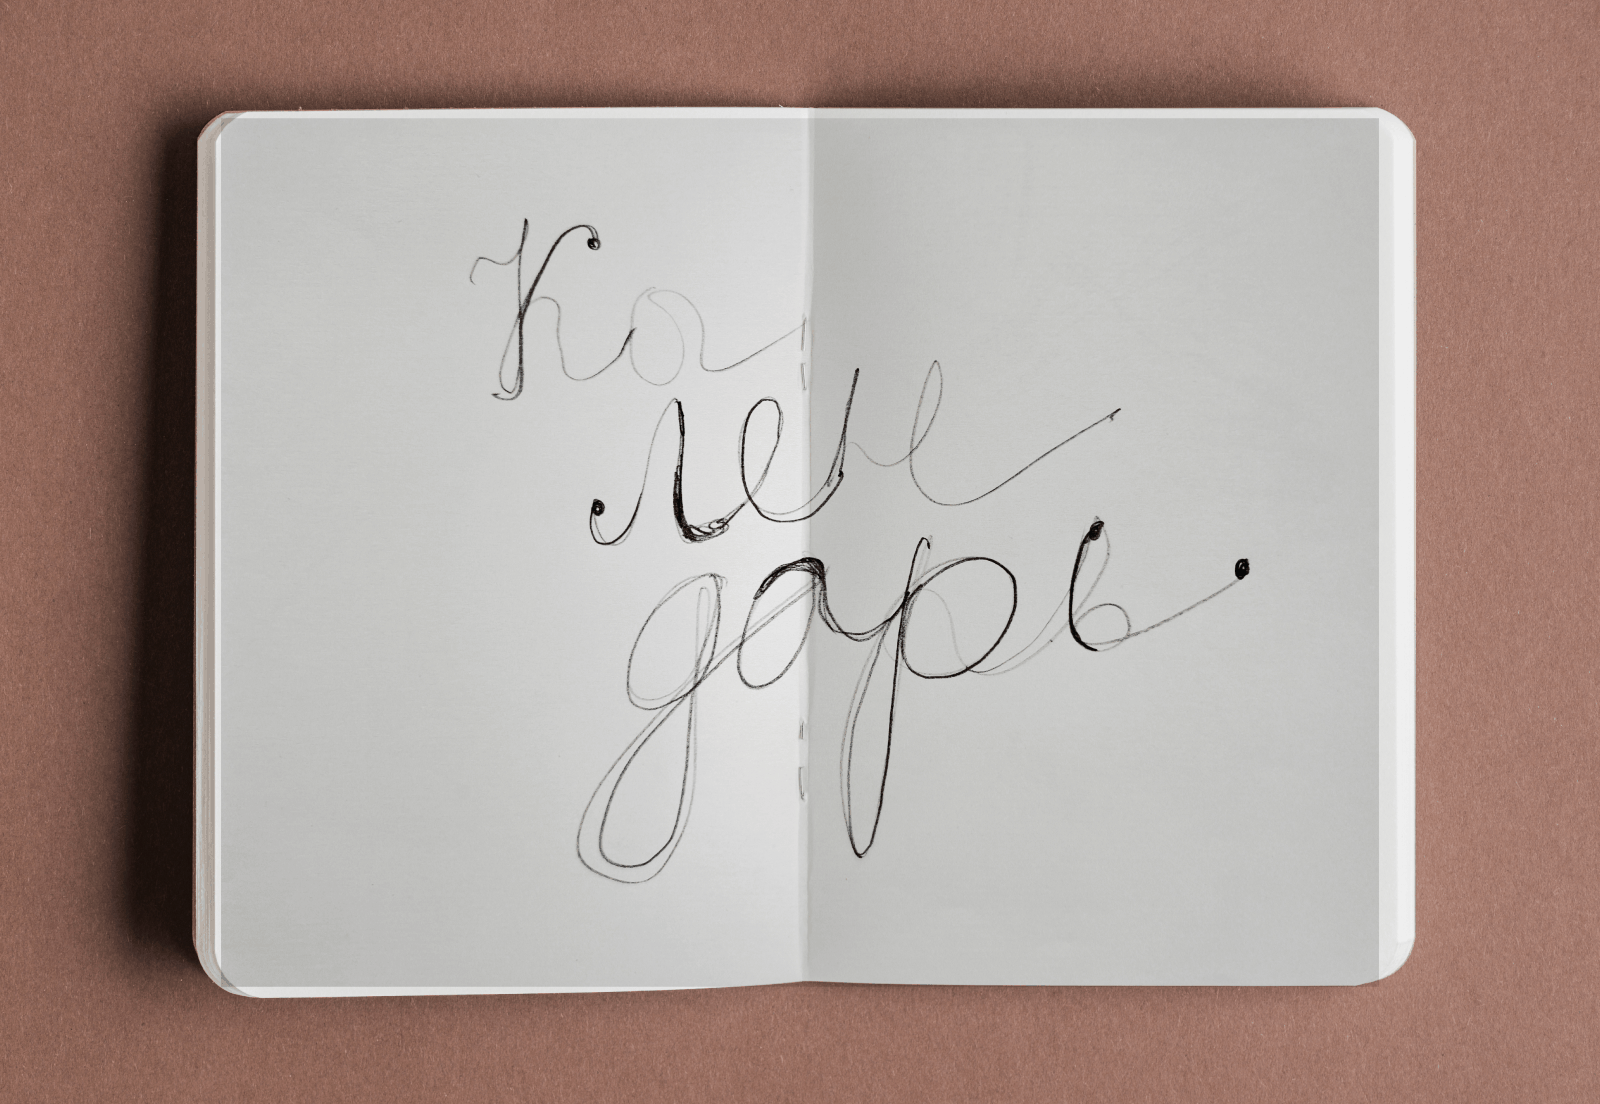 Ка
лен
дарь